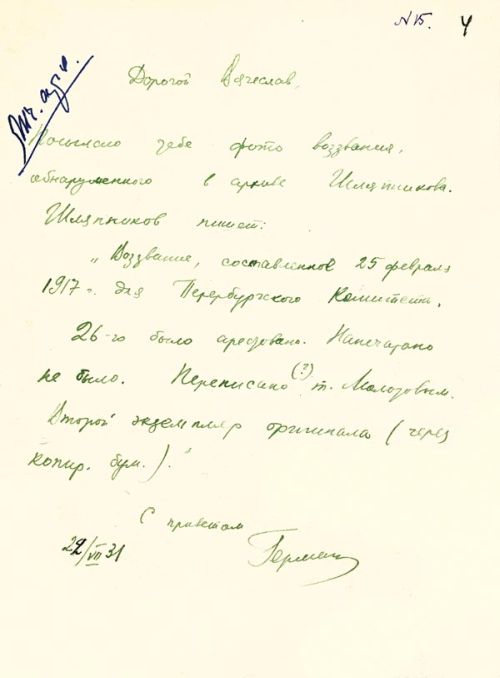 N 15. 4
Дорогой Вячеслав,
Посылаю тебе фото воззвания,
обнаруженного в архиве Шляпникова.
Шляпников пишет:
„Воззвание, составленное 25 февраля
1917 г. для Петербургского Комитета.
26-го было арестовано. Напечатано
не было. Переписано (?) т. Молотовым.
Второй экземпляр оригинала (через
копир. бум.)."
С приветом
22/VII 31 Герман